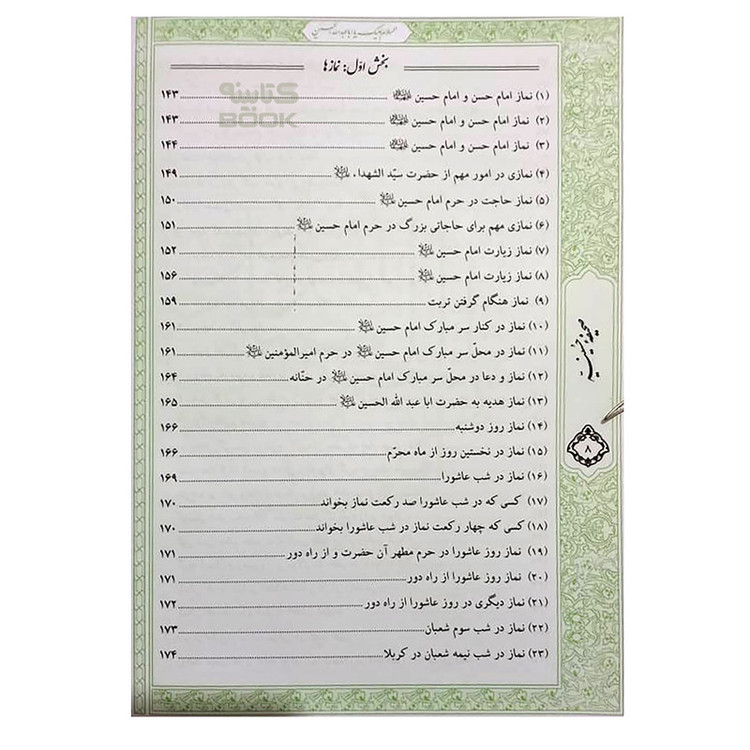 السلام علیک یا اباعبدالله الحسین
بخش اوّل: نمازها
کتابینه
BOOK
(۱) نماز امام حسن و امام حسین ........ ۱۴۳
(۲) نماز امام حسن و امام حسین ........ ۱۴۳
(۳) نماز امام حسن و امام حسین ........ ۱۴۴
(۴) نمازی در امور مهم از حضرت سیّد الشهداء ........ ۱۴۹
(۵) نماز حاجت در حرم امام حسین ........ ۱۵۰
(۶) نمازی مهم برای حاجاتی بزرگ در حرم امام حسین ........ ۱۵۱
(۷) نماز زیارت امام حسین ........ ۱۵۲
(۸) نماز زیارت امام حسین ........ ۱۵۶
(۹) نماز هنگام گرفتن تربت ........ ۱۵۹
(۱۰) نماز در کنار سر مبارک امام حسین ........ ۱۶۱
(۱۱) نماز در محلّ سر مبارک امام حسین در حرم امیرالمؤمنین ........ ۱۶۱
(۱۲) نماز و دعا در محلّ سر مبارک امام حسین در حنّانه ........ ۱۶۴
(۱۳) نماز هدیه به حضرت ابا عبد الله الحسین ........ ۱۶۵
(۱۴) نماز روز دوشنبه ........ ۱۶۶
(۱۵) نماز در نخستین روز از ماه محرّم ........ ۱۶۶
(۱۶) نماز در شب عاشورا ........ ۱۶۹
(۱۷) کسی که در شب عاشورا صد رکعت نماز بخواند ........ ۱۷۰
(۱۸) کسی که چهار رکعت نماز در شب عاشورا بخواند ........ ۱۷۰
(۱۹) نماز روز عاشورا در حرم مطهر آن حضرت و از راه دور ........ ۱۷۱
(۲۰) نماز روز عاشورا از راه دور ........ ۱۷۱
(۲۱) نماز دیگری در روز عاشورا از راه دور ........ ۱۷۲
(۲۲) نماز در شب سوم شعبان ........ ۱۷۳
(۲۳) نماز در شب نیمه شعبان در کربلا ........ ۱۷۴
صحیفه حسینیه
۸